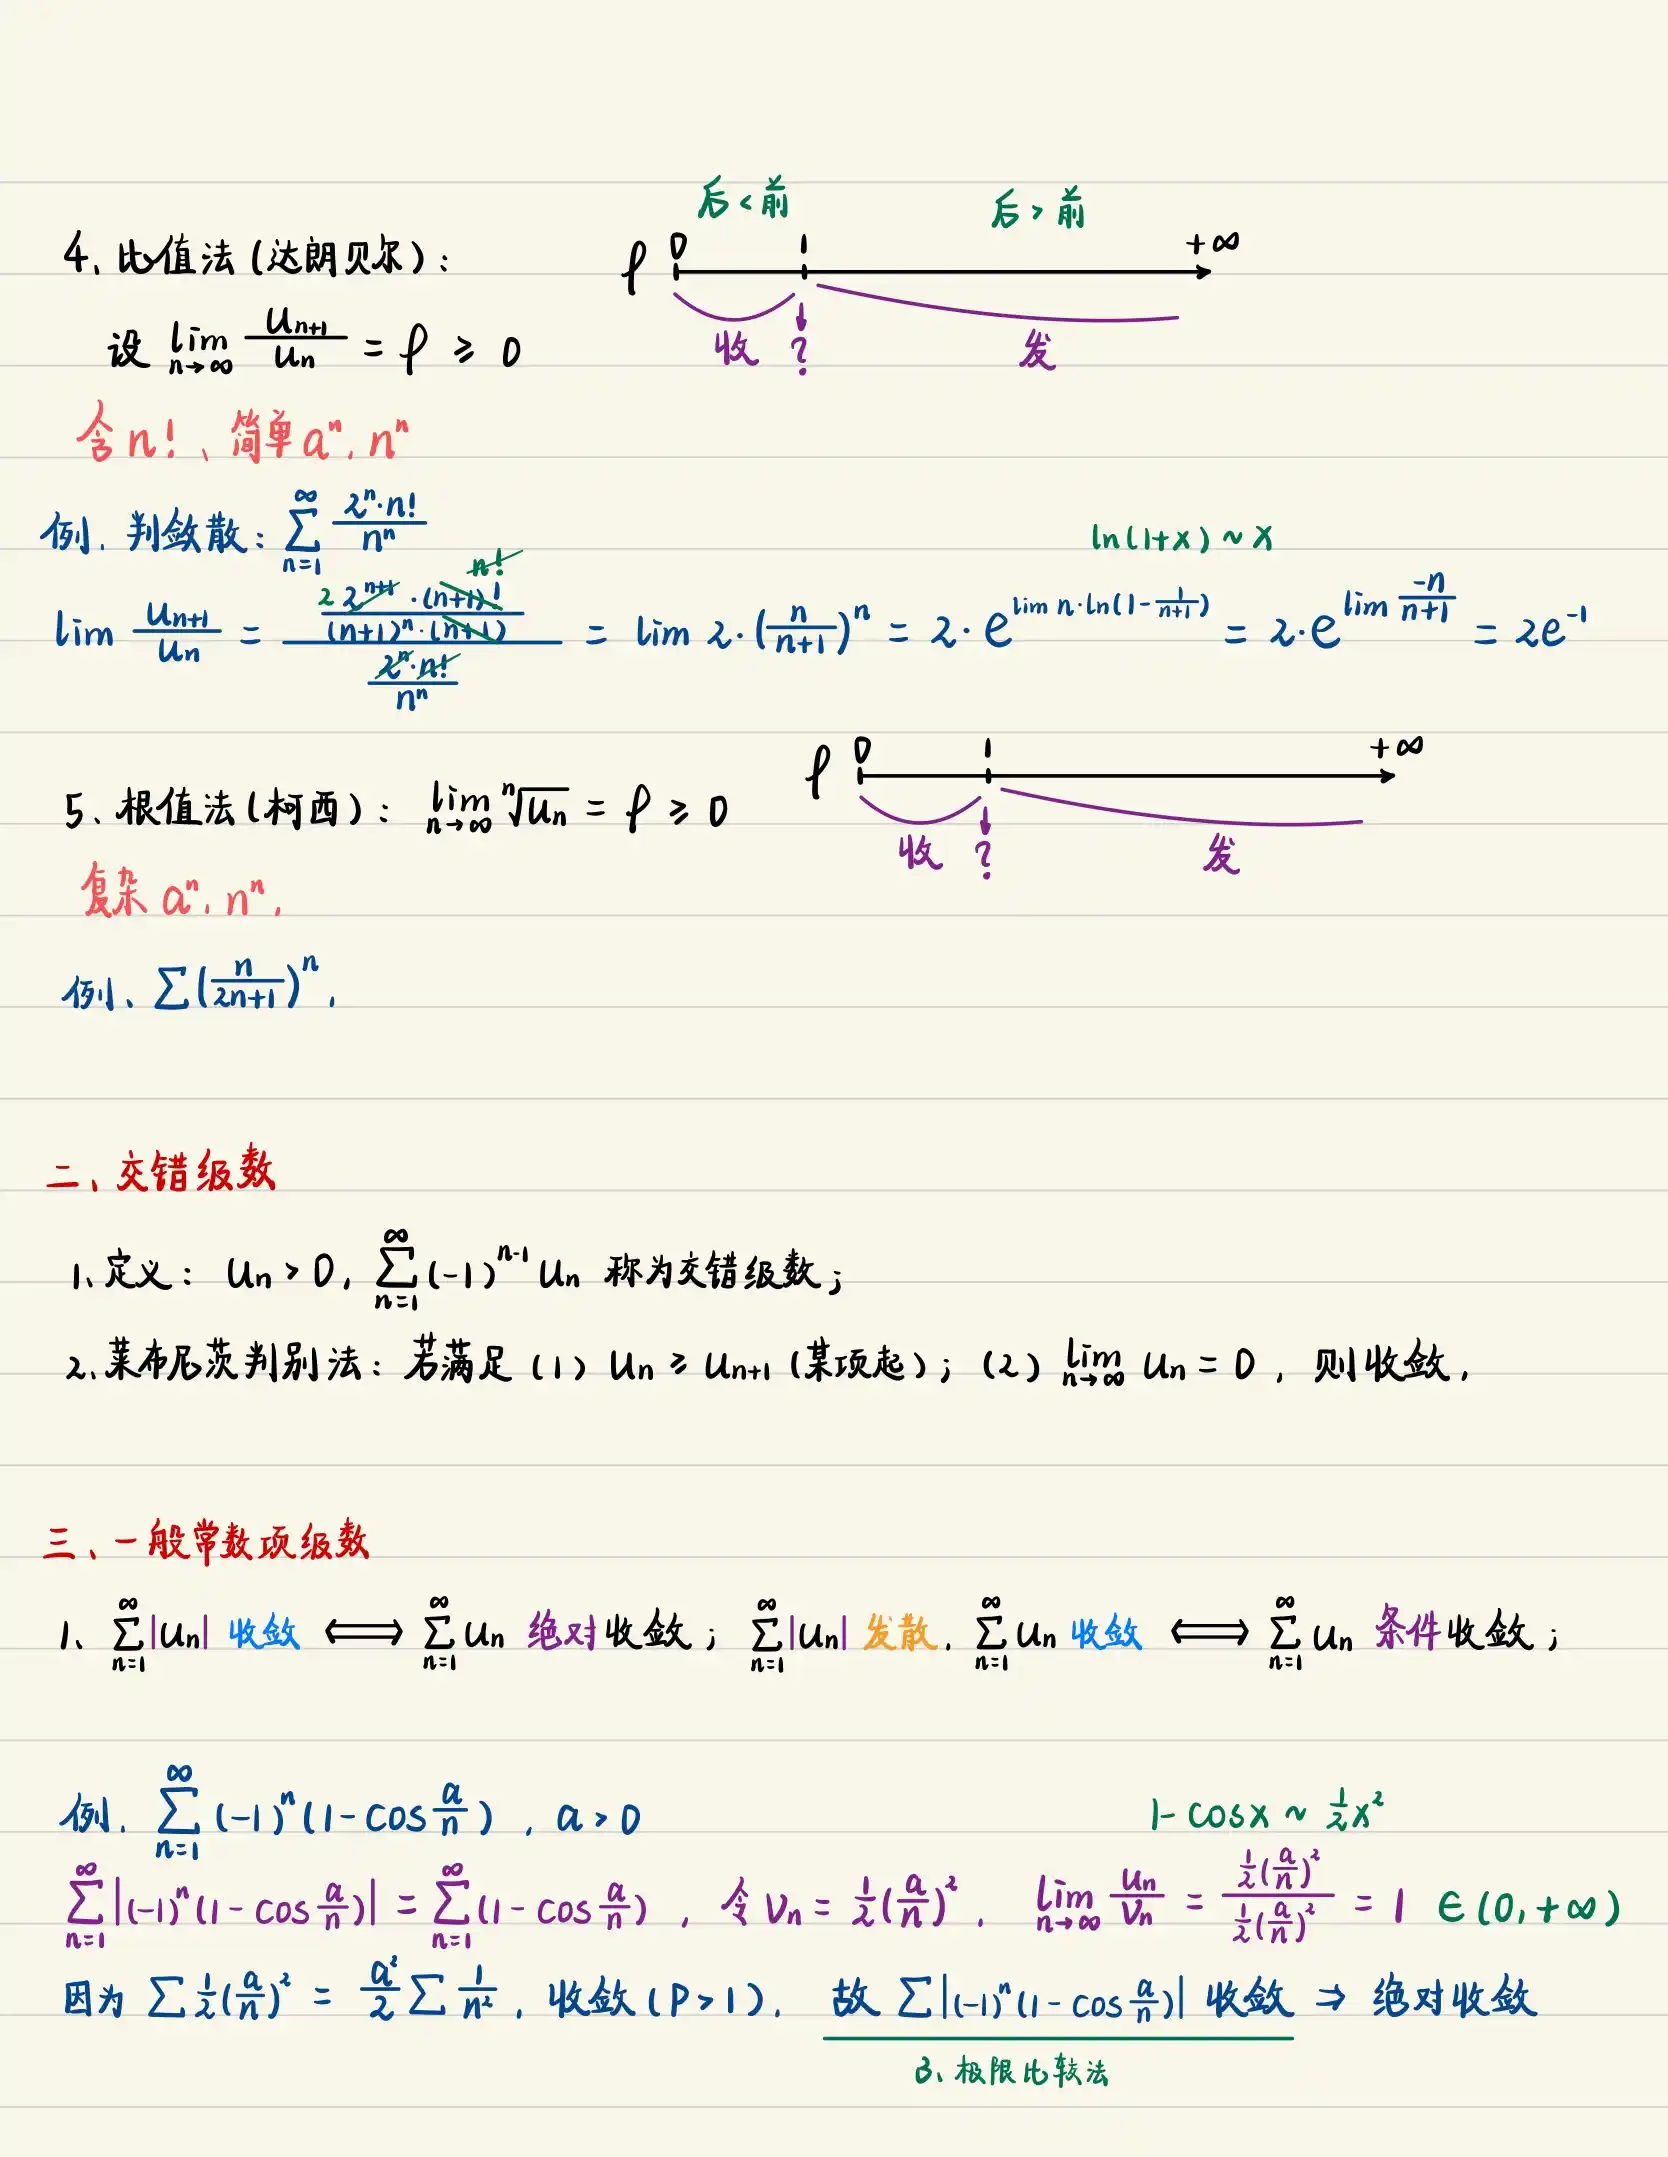 后<前 后>前
4、比值法(达朗贝尔): ρ 0 1 +∞
设 lim_{n→∞} u_{n+1}/u_n = ρ ≥ 0 收 ? 发
含n!、简单aⁿ, nⁿ
例. 判敛散: ∑_{n=1}^{∞} 2ⁿ·n!/nⁿ ln(1+x)~x
lim u_{n+1}/u_n = (2 2^{n+1}·(n+1)! n! / (n+1)ⁿ·(n+1)) / (2ⁿ·n!/nⁿ) = lim 2·(n/(n+1))ⁿ = 2·e^{lim n·ln(1-1/(n+1))} = 2·e^{lim -n/(n+1)} = 2e⁻¹
5、根值法(柯西): lim_{n→∞} ⁿ√u_n = ρ ≥ 0 ρ 0 1 +∞
收 ? 发
复杂aⁿ, nⁿ,
例、∑(n/(2n+1))ⁿ,
二、交错级数
1、定义: u_n>0, ∑_{n=1}^{∞}(-1)^{n-1}u_n 称为交错级数;
2、莱布尼茨判别法: 若满足(1) u_n ≥ u_{n+1}(某项起); (2) lim_{n→∞} u_n = 0, 则收敛,
三、一般常数项级数
1、∑_{n=1}^{∞}|u_n| 收敛 ⟺ ∑_{n=1}^{∞}u_n 绝对收敛; ∑_{n=1}^{∞}|u_n| 发散, ∑_{n=1}^{∞}u_n 收敛 ⟺ ∑_{n=1}^{∞}u_n 条件收敛;
例. ∑_{n=1}^{∞}(-1)ⁿ(1-cos a/n), a>0 1-cosx~½x²
∑_{n=1}^{∞}|(-1)ⁿ(1-cos a/n)| = ∑_{n=1}^{∞}(1-cos a/n), 令v_n = ½(a/n)², lim_{n→∞} u_n/v_n = ½(a/n)²/½(a/n)² = 1 ∈(0,+∞)
因为 ∑½(a/n)² = a²/2 ∑ 1/n², 收敛(P>1), 故 ∑|(-1)ⁿ(1-cos a/n)| 收敛 ⇒ 绝对收敛
3、极限比较法